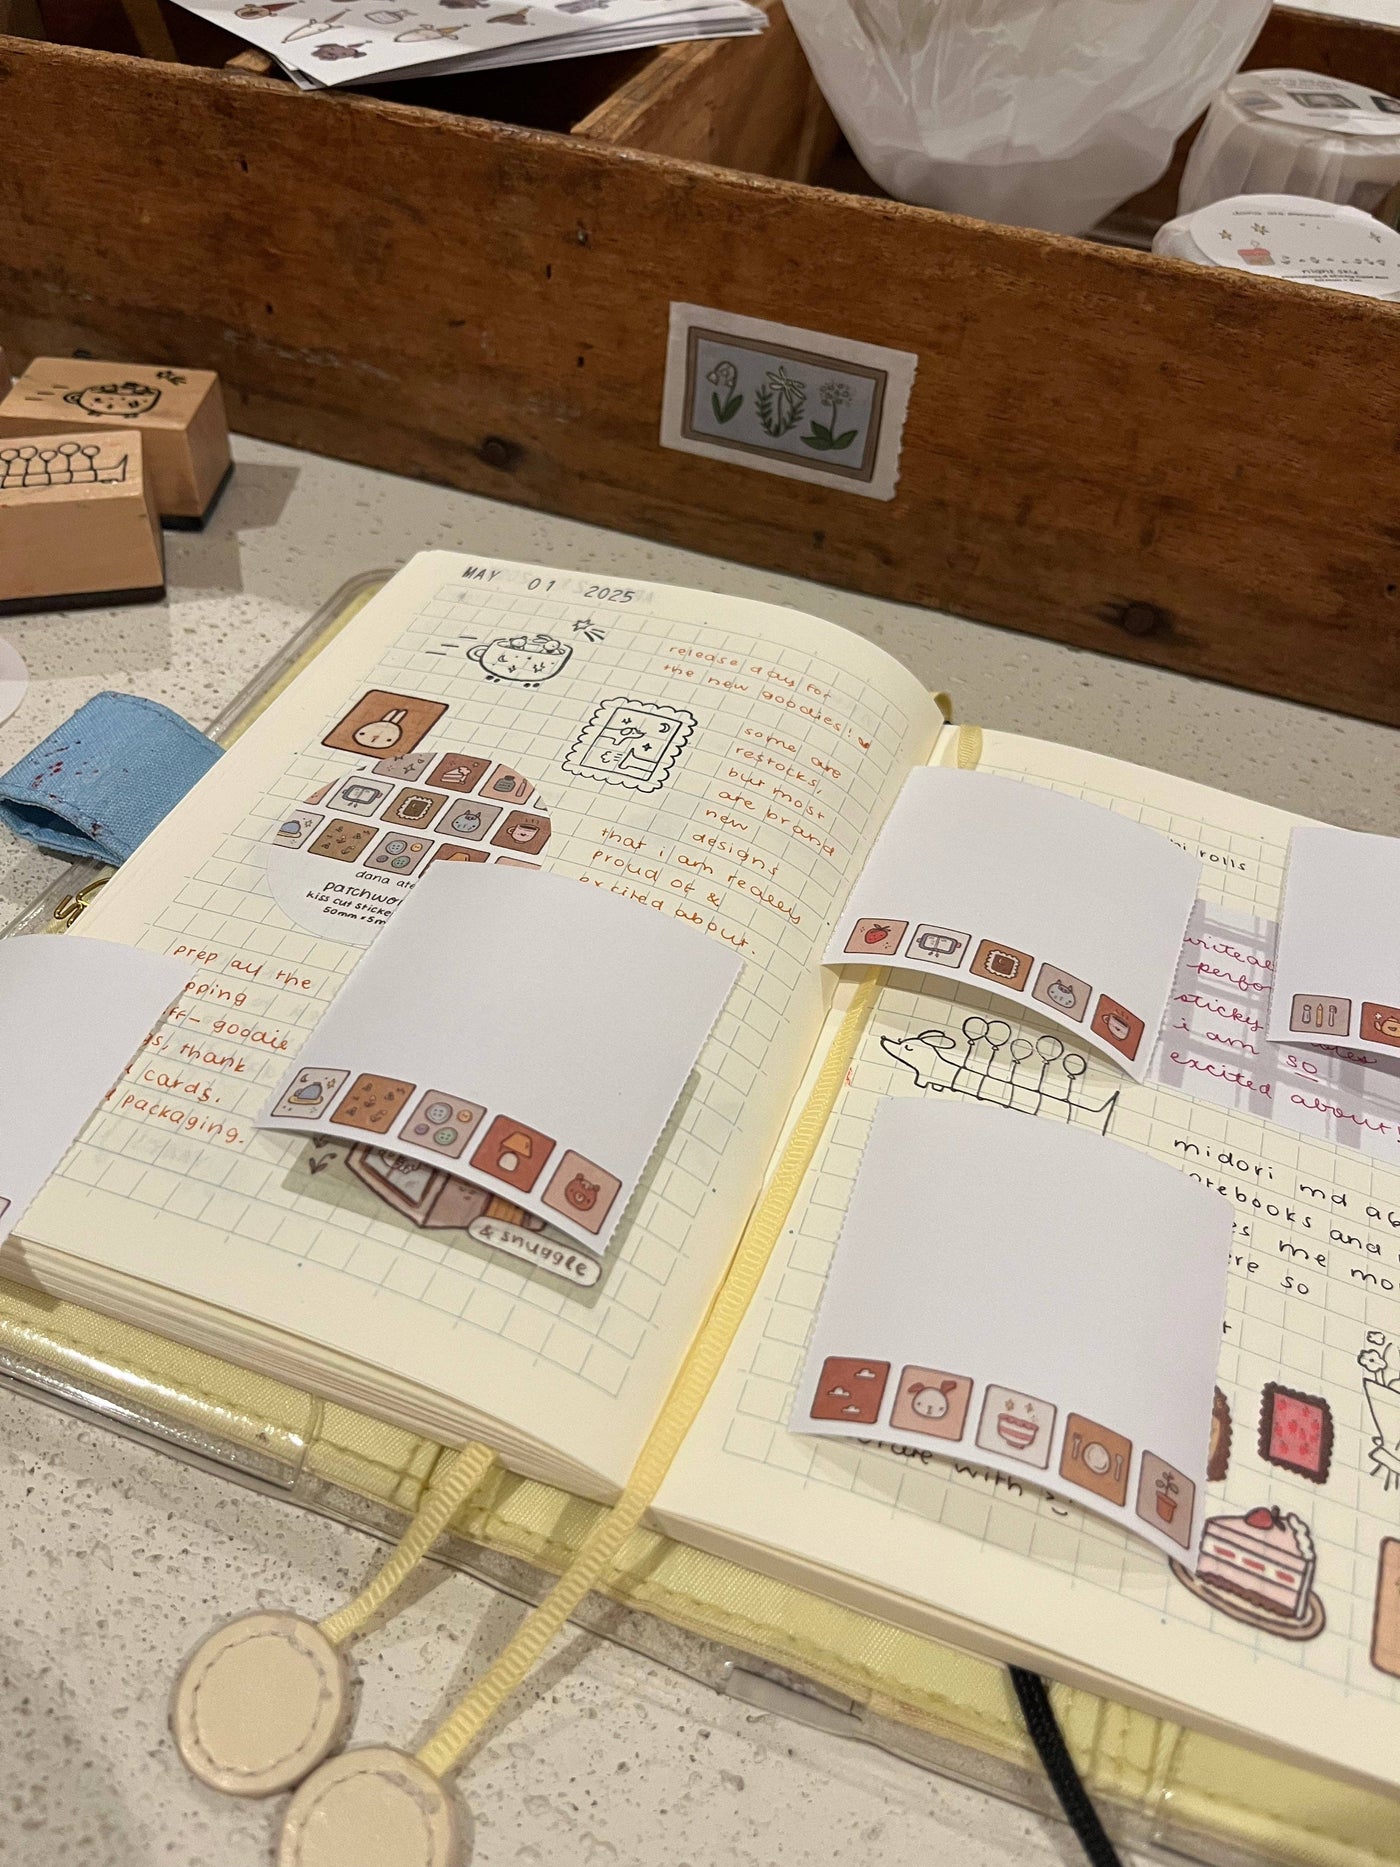 night sky
MAY 01 2025
release day for
the new goodies!
some are
restocks,
but most
are brand
new
designs
that i am really
proud of &
excited about.
dana
patchwo
kiss cut sticke
50mm • 5m
prep all the
pping
ff- goodie
gs, thank
cards.
packaging.
& snuggle
ni rolls
writeab
perfo
sticky
i am so
excited about!
midori md
notebooks and
es me mo
ere so
with :)